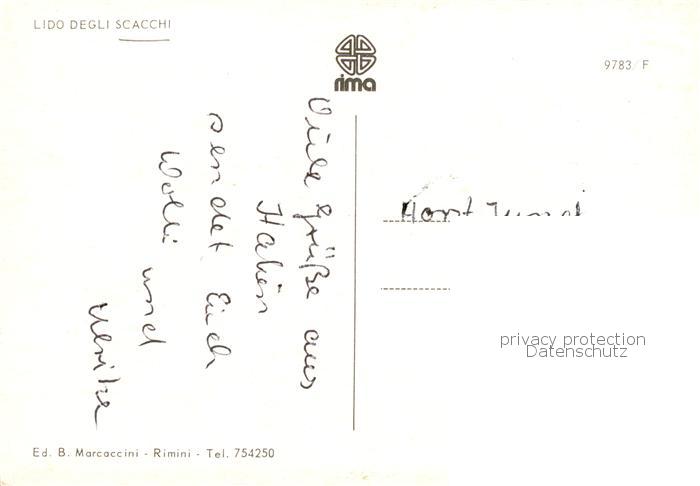 LIDO DEGLI SCACCHI
rima
9783/F
Viele Grüße aus
Italien
sendet Euch
Wolli und
Ulrike
Horst
privacy protection
Datenschutz
Ed. B. Marcaccini - Rimini - Tel. 754250